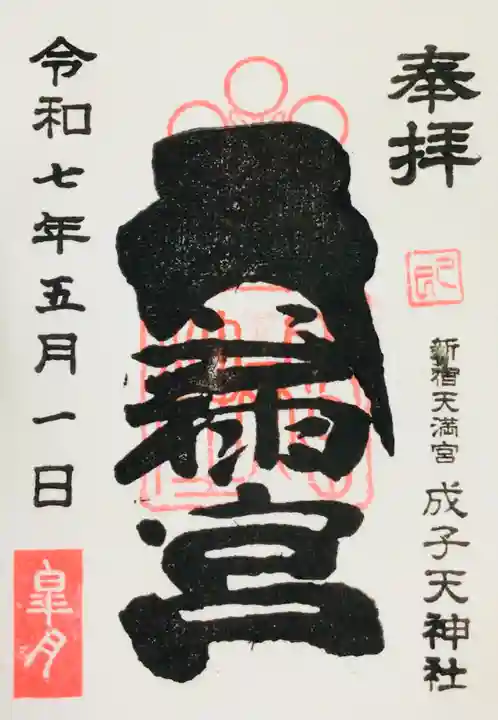 奉拝
新宿天満宮 成子天神社
宮
令和七年五月一日
皐月